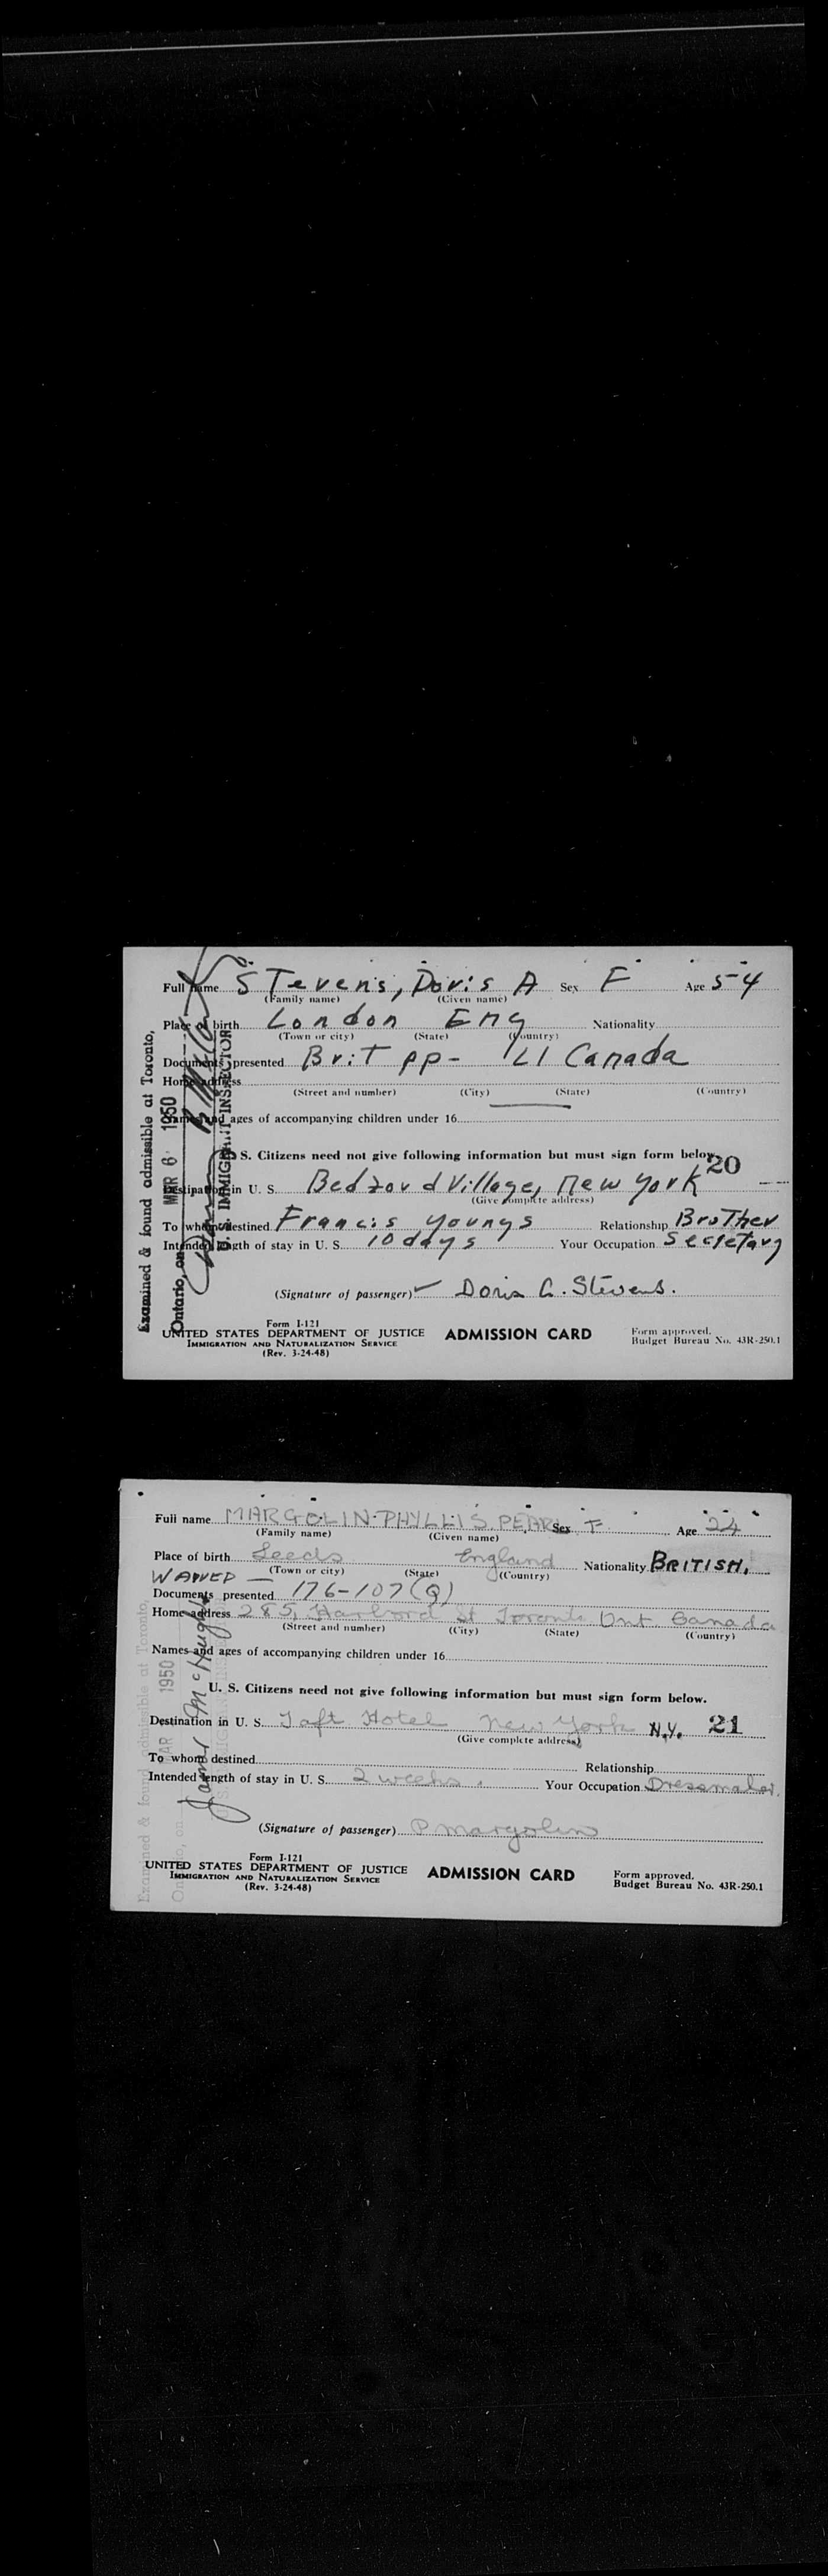 Full name STevens, Doris A Sex F Age 54
(Family name) (Given name)
Place of birth London Eng Nationality
(Town or city) (State) (Country)
Documents presented Brit pp - LI Canada
Home address
(Street and number) (City) (State) (Country)
Names and ages of accompanying children under 16
U. S. Citizens need not give following information but must sign form below.
20
Destination in U. S. Bedford Village, New York
(Give complete address)
To whom destined Francis Youngs Relationship BroTher
Intended length of stay in U. S. 10 days Your Occupation SecreTary
(Signature of passenger) Doris A. Stevens.
Form I-121
UNITED STATES DEPARTMENT OF JUSTICE ADMISSION CARD Form approved.
IMMIGRATION AND NATURALIZATION SERVICE Budget Bureau No. 43R-250.1
(Rev. 3-24-48)
Examined & found admissible at Toronto,
Ontario, on MAR 6 1950
U. S. IMMIGRANT INSPECTOR
Full name MARGOLIN PHYLLIS PEARL Sex F Age 24
(Family name) (Given name)
Place of birth Leeds England Nationality BRITISH.
(Town or city) (State) (Country)
WAIVED —
Documents presented 176-107(Q)
Home address 285, Harbord St Toronto Ont. Canada
(Street and number) (City) (State) (Country)
Names and ages of accompanying children under 16
U. S. Citizens need not give following information but must sign form below.
Destination in U. S. Taft Hotel New York N.Y. 21
(Give complete address)
To whom destined Relationship
Intended length of stay in U. S. 2 weeks. Your Occupation Dressmaker.
(Signature of passenger) P Margolin
Form I-121
UNITED STATES DEPARTMENT OF JUSTICE ADMISSION CARD Form approved.
IMMIGRATION AND NATURALIZATION SERVICE Budget Bureau No. 43R-250.1
(Rev. 3-24-48)
Examined & found admissible at Toronto,
Ontario, on MAR 1950
James McHugh